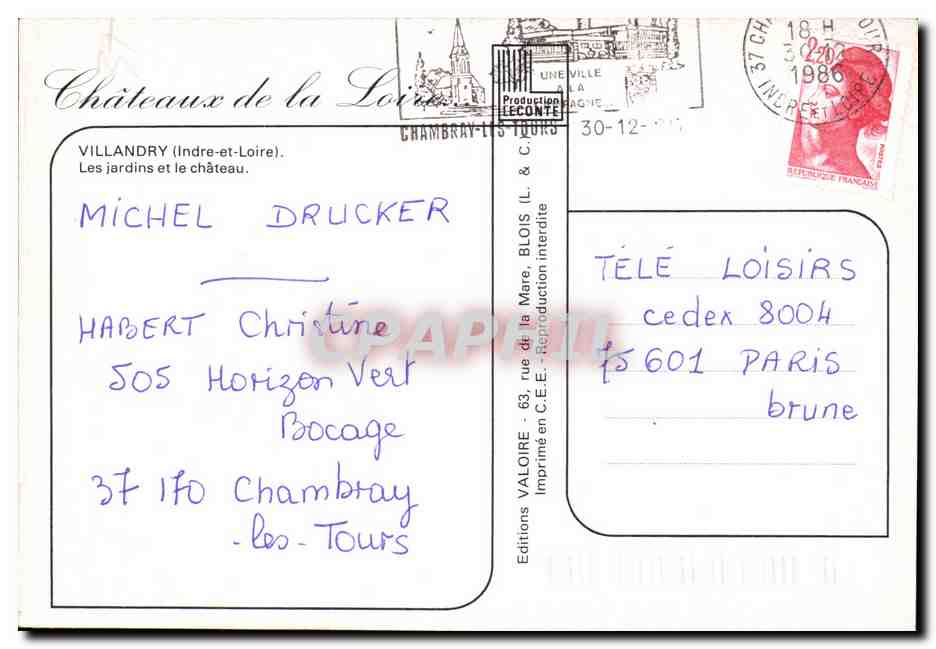 Châteaux de la Loire...
VILLANDRY (Indre-et-Loire).
Les jardins et le château.
MICHEL DRUCKER
HABERT Christine
505 Horizon Vert
Bocage
37 170 Chambray
-les-Tours
UNE VILLE
A LA
CHAMBRAY-LES-TOURS
30-12-
Production
LECONTE
Editions VALOIRE - 63, rue de la Mare, BLOIS (L. & C.
Imprimé en C.E.E. - Reproduction interdite
18 H
1986
INDRE ET LOIRE
2,20
POSTES
REPUBLIQUE FRANÇAISE
TÉLÉ LOISIRS
cedex 8004
75601 PARIS
brune
CPAPHIL